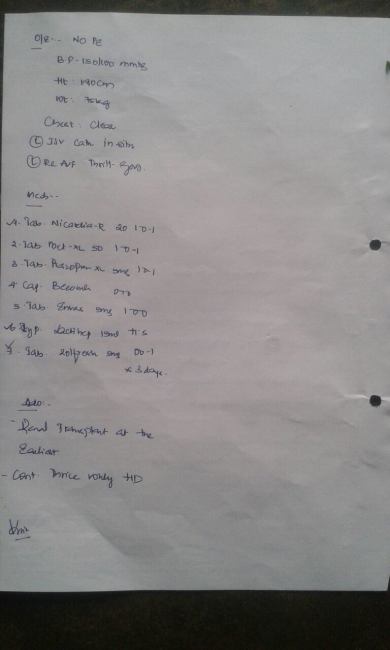 O/E:- NO PE
B.P - 150/100 mmHg
Ht : 190cm
Wt : 75kg
Chest : Clear
(L) IJV Cath in situ
(L) RC AVF Thrill - Good.
Meds:-
1. Tab. Nicardia-R 20 1-0-1
2. Tab XL 50 1-0-1
3. Tab. XL 5mg 1-0-1
4. Cap. Becosule
5. Tab. 5mg 1-0-0
6. Syp. 15ml H.S
7. Tab. Zolfresh 5mg 00-1
x 3 days.
Adv:-
- Renal Transplant at the
Earliest
- Cont. Thrice weekly HD